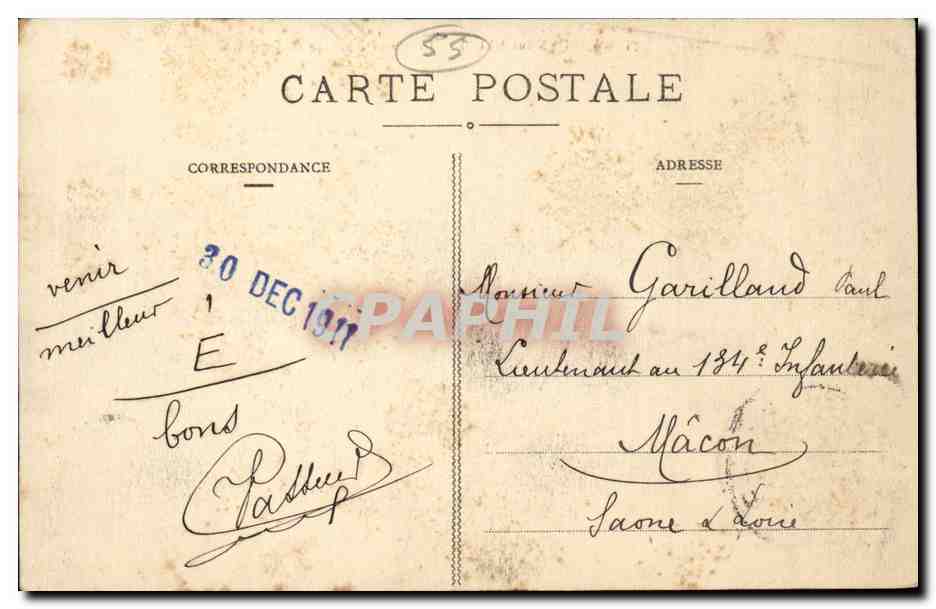 55
CARTE POSTALE
CORRESPONDANCE
venir
meilleur !
E
bons
30 DEC 1911
ADRESSE
Monsieur Garilland Paul
Lieutenant au 134e Infanterie
Mâcon
Saone & Loire
CPAPHIL